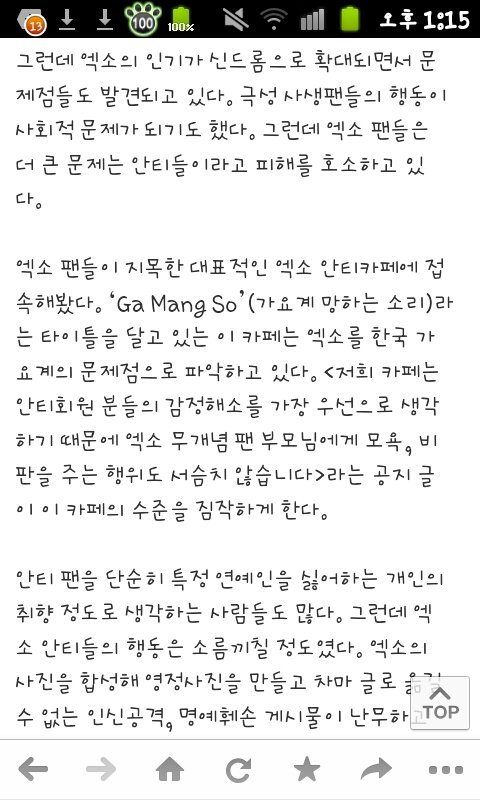 13
100
100%
오후 1:15
그런데 엑소의 인기가 신드롬으로 확대되면서 문
제점들도 발견되고 있다. 극성 사생팬들의 행동이
사회적 문제가 되기도 했다. 그런데 엑소 팬들은
더 큰 문제는 안티들이라고 피해를 호소하고 있
다.
엑소 팬들이 지목한 대표적인 엑소 안티카페에 접
속해봤다. ‘Ga Mang So’(가요계 망하는 소리)라
는 타이틀을 달고 있는 이 카페는 엑소를 한국 가
요계의 문제점으로 파악하고 있다. <저희 카페는
안티회원 분들의 감정해소를 가장 우선으로 생각
하기 때문에 엑소 무개념 팬 부모님에게 모욕, 비
판을 주는 행위도 서슴치 않습니다>라는 공지 글
이 이 카페의 수준을 짐작하게 한다.
안티 팬을 단순히 특정 연예인을 싫어하는 개인의
취향 정도로 생각하는 사람들도 많다. 그런데 엑
소 안티들의 행동은 소름끼칠 정도였다. 엑소의
사진을 합성해 영정사진을 만들고 차마 글로
수 없는 인신공격, 명예훼손 게시물이 난무하고
TOP